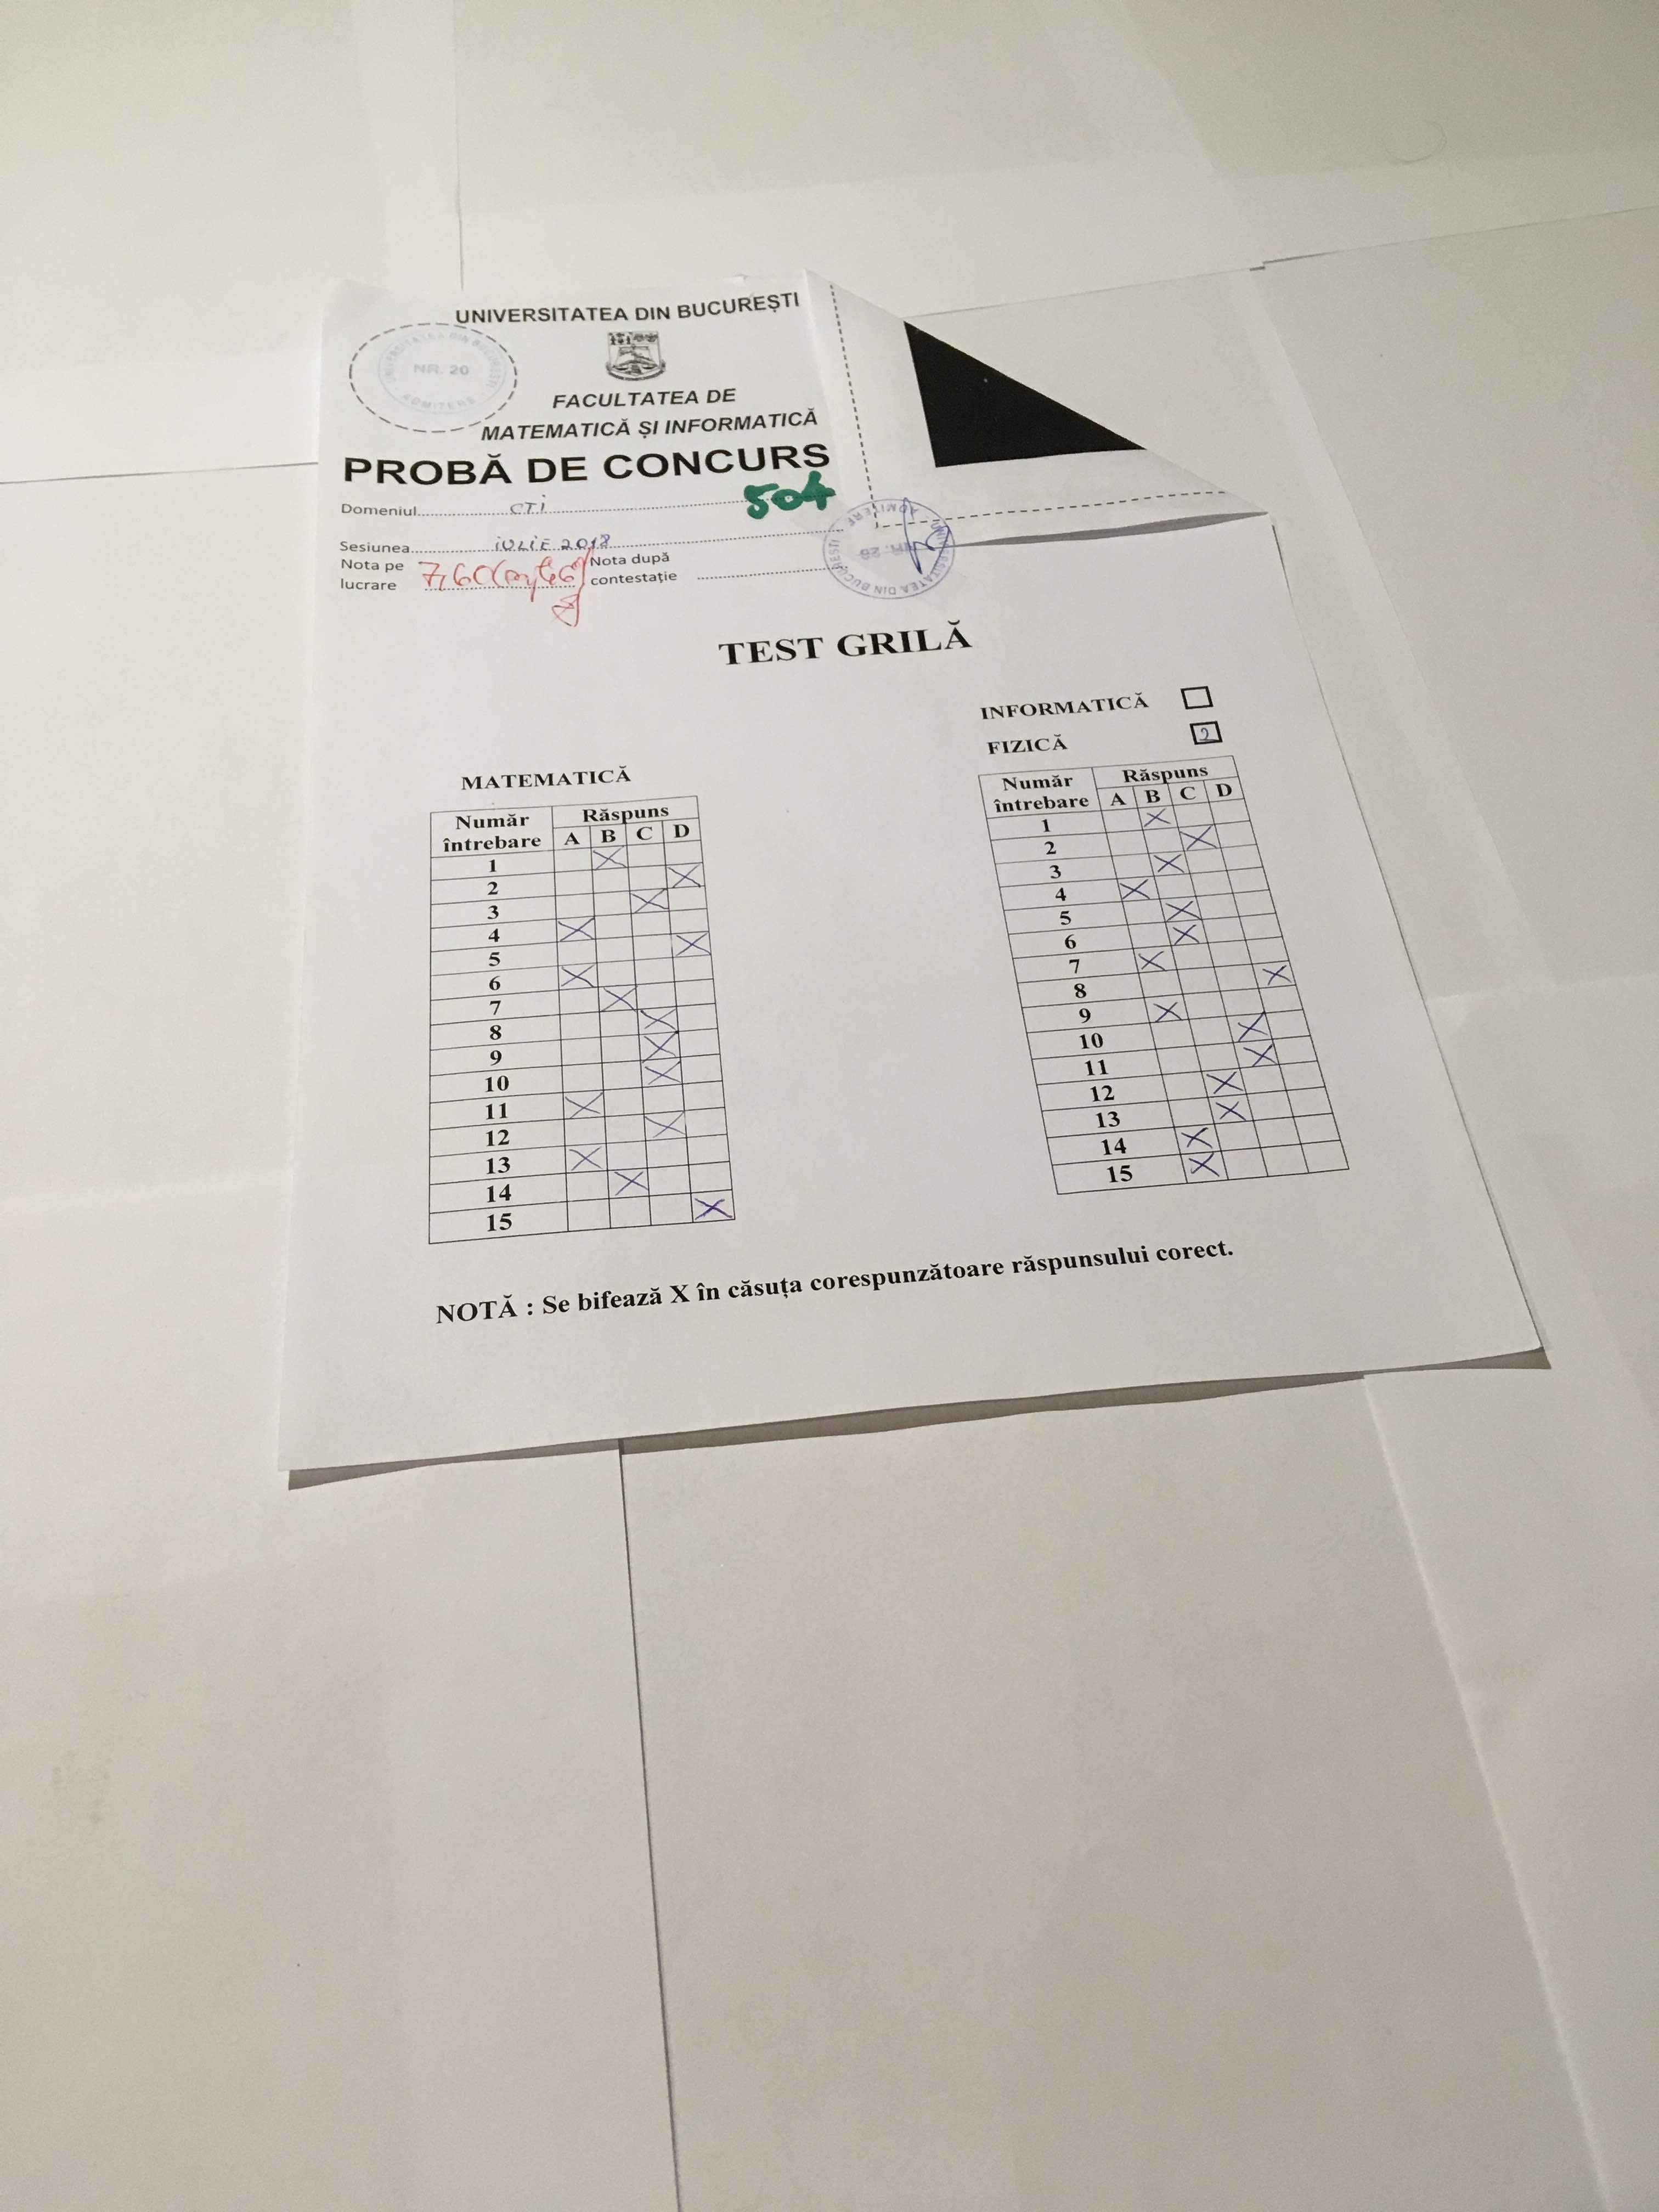 UNIVERSITATEA DIN BUCUREȘTI
UNIVERSITATEA DIN BUCUREȘTI
NR. 20
ADMITERE
FACULTATEA DE
MATEMATICĂ ȘI INFORMATICĂ
PROBĂ DE CONCURS
504
Domeniul CTI
Sesiunea iULIE 2018
Nota pe lucrare 7,60
Nota după contestație
UNIVERSITATEA DIN BUCUREȘTI
NR. 20
ADMITERE
TEST GRILĂ
INFORMATICĂ
FIZICĂ 2
MATEMATICĂ
Număr întrebare Răspuns
A B C D
1 X
2 X
3 X
4 X
5 X
6 X
7 X
8 X
9 X
10 X
11 X
12 X
13 X
14 X
15 X
Număr întrebare Răspuns
A B C D
1 X
2 X
3 X
4 X
5 X
6 X
7 X
8 X
9 X
10 X
11 X
12 X
13 X
14 X
15 X
NOTĂ : Se bifează X în căsuța corespunzătoare răspunsului corect.